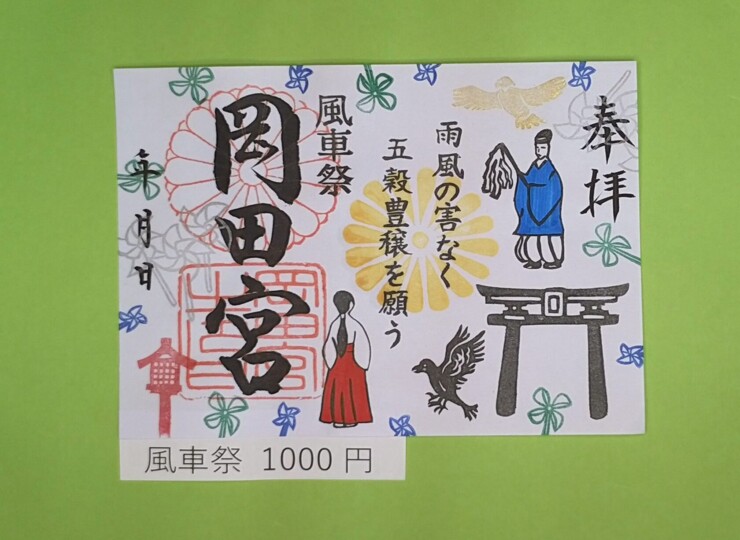 奉拝
雨風の害なく
五穀豊穣を願う
風車祭
岡田宮
年月日
風車祭 1000円